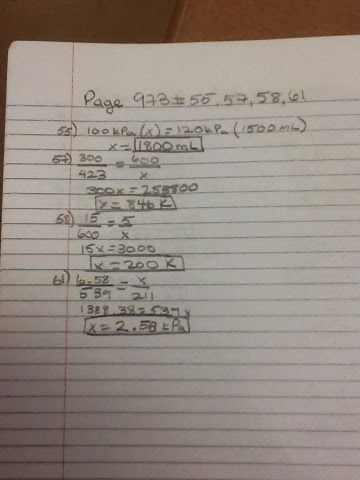 Page 973 # 55, 57, 58, 61
55) 100 kPa (x) = 120 kPa (1500 mL)
x = 1800 mL
57) 300/423 = 600/x
300x = 253800
x = 846 K
58) 15/600 = 5/x
15x = 3000
x = 200 K
61) 6.58/539 = x/211
1388.38 = 539x
x = 2.58 kPa